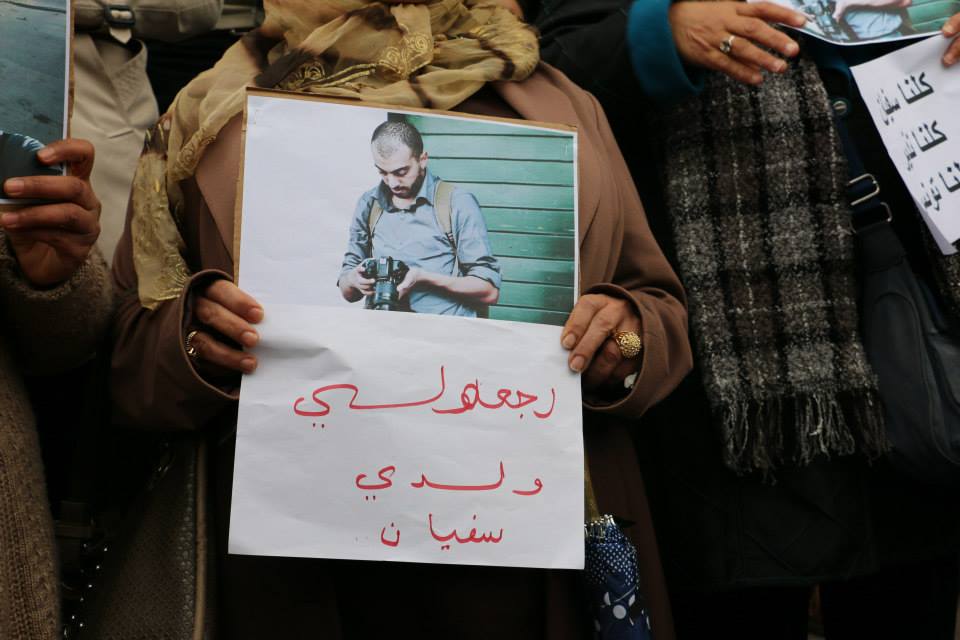 رجعلولي
ولدي
سفيان
كلنا سفيان
كلنا نذير